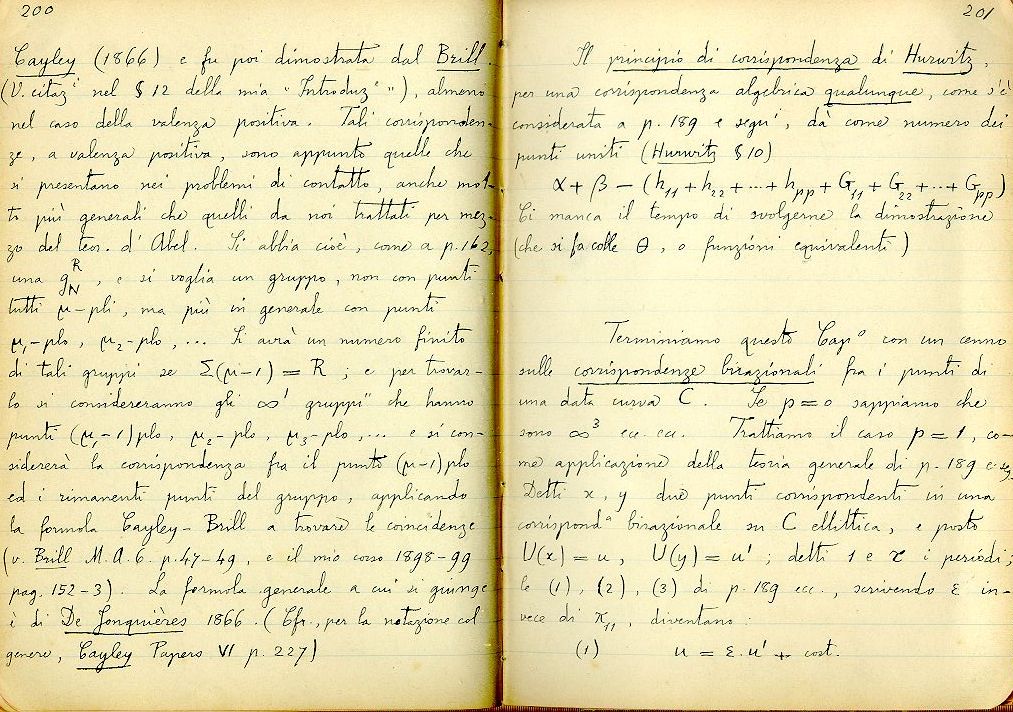 200
Cayley (1866) e fu poi dimostrata dal Brill.
(V. citaz¹ nel § 12 della mia "Introduz^e"), almeno
nel caso della valenza positiva. Tali corrisponden-
ze, a valenza positiva, sono appunto quelle che
si presentano nei problemi di contatto, anche mol-
to più generali che quelli da noi trattati per mez-
zo del teor. d'Abel. Si abbia cioè, come a p. 162,
una g_N^R, e si voglia un gruppo, non con punti
tutti μ-pli, ma più in generale con punti
μ₁-plo, μ₂-plo, ... Si avrà un numero finito
di tali gruppi se Σ(μ-1) = R; e per trovar-
lo si considereranno gli ∞¹ gruppi che hanno
punti (μ₁-1)plo, μ₂-plo, μ₃-plo, ... e si con-
sidererà la corrispondenza fra il punto (μ-1)plo
ed i rimanenti punti del gruppo, applicando
la formola Cayley-Brill a trovare le coincidenze
(v. Brill M. A. 6. p. 47-49, e il mio corso 1898-99
pag. 152-3). La formola generale a cui si giunge
è di De Jonquières 1866. (Cfr., per la notazione col
genere, Cayley Papers VI p. 227)
201
Il principio di corrispondenza di Hurwitz,
per una corrispondenza algebrica qualunque, come s'è
considerata a p. 189 e segu¹, dà come numero dei
punti uniti (Hurwitz § 10)
α + β - (h₁₁ + h₂₂ + ... + h_pp + G₁₁ + G₂₂ + ... + G_pp)
Ci manca il tempo di svolgerne la dimostrazione
(che si fa colle θ, o funzioni equivalenti)
Terminiamo questo Cap° con un cenno
sulle corrispondenze birazionali fra i punti di
una data curva C. Se p = 0 sappiamo che
sono ∞³ ecc. ecc. Trattiamo il caso p = 1, co-
me applicazione della teoria generale di p. 189 e seg.
Detti x, y due punti corrispondenti in una
corrispond^a birazionale su C ellittica, e posto
U(x) = u, U(y) = u'; detti 1 e τ i periodi;
le (1), (2), (3) di p. 189 ecc., scrivendo ε in-
vece di π₁₁, diventano:
(1) u = ε.u' + cost.